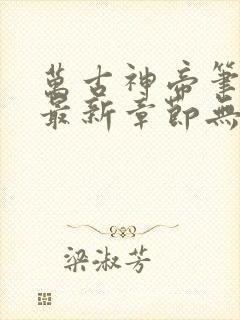 萬古神帝筆
最新章節無
梁淑芳